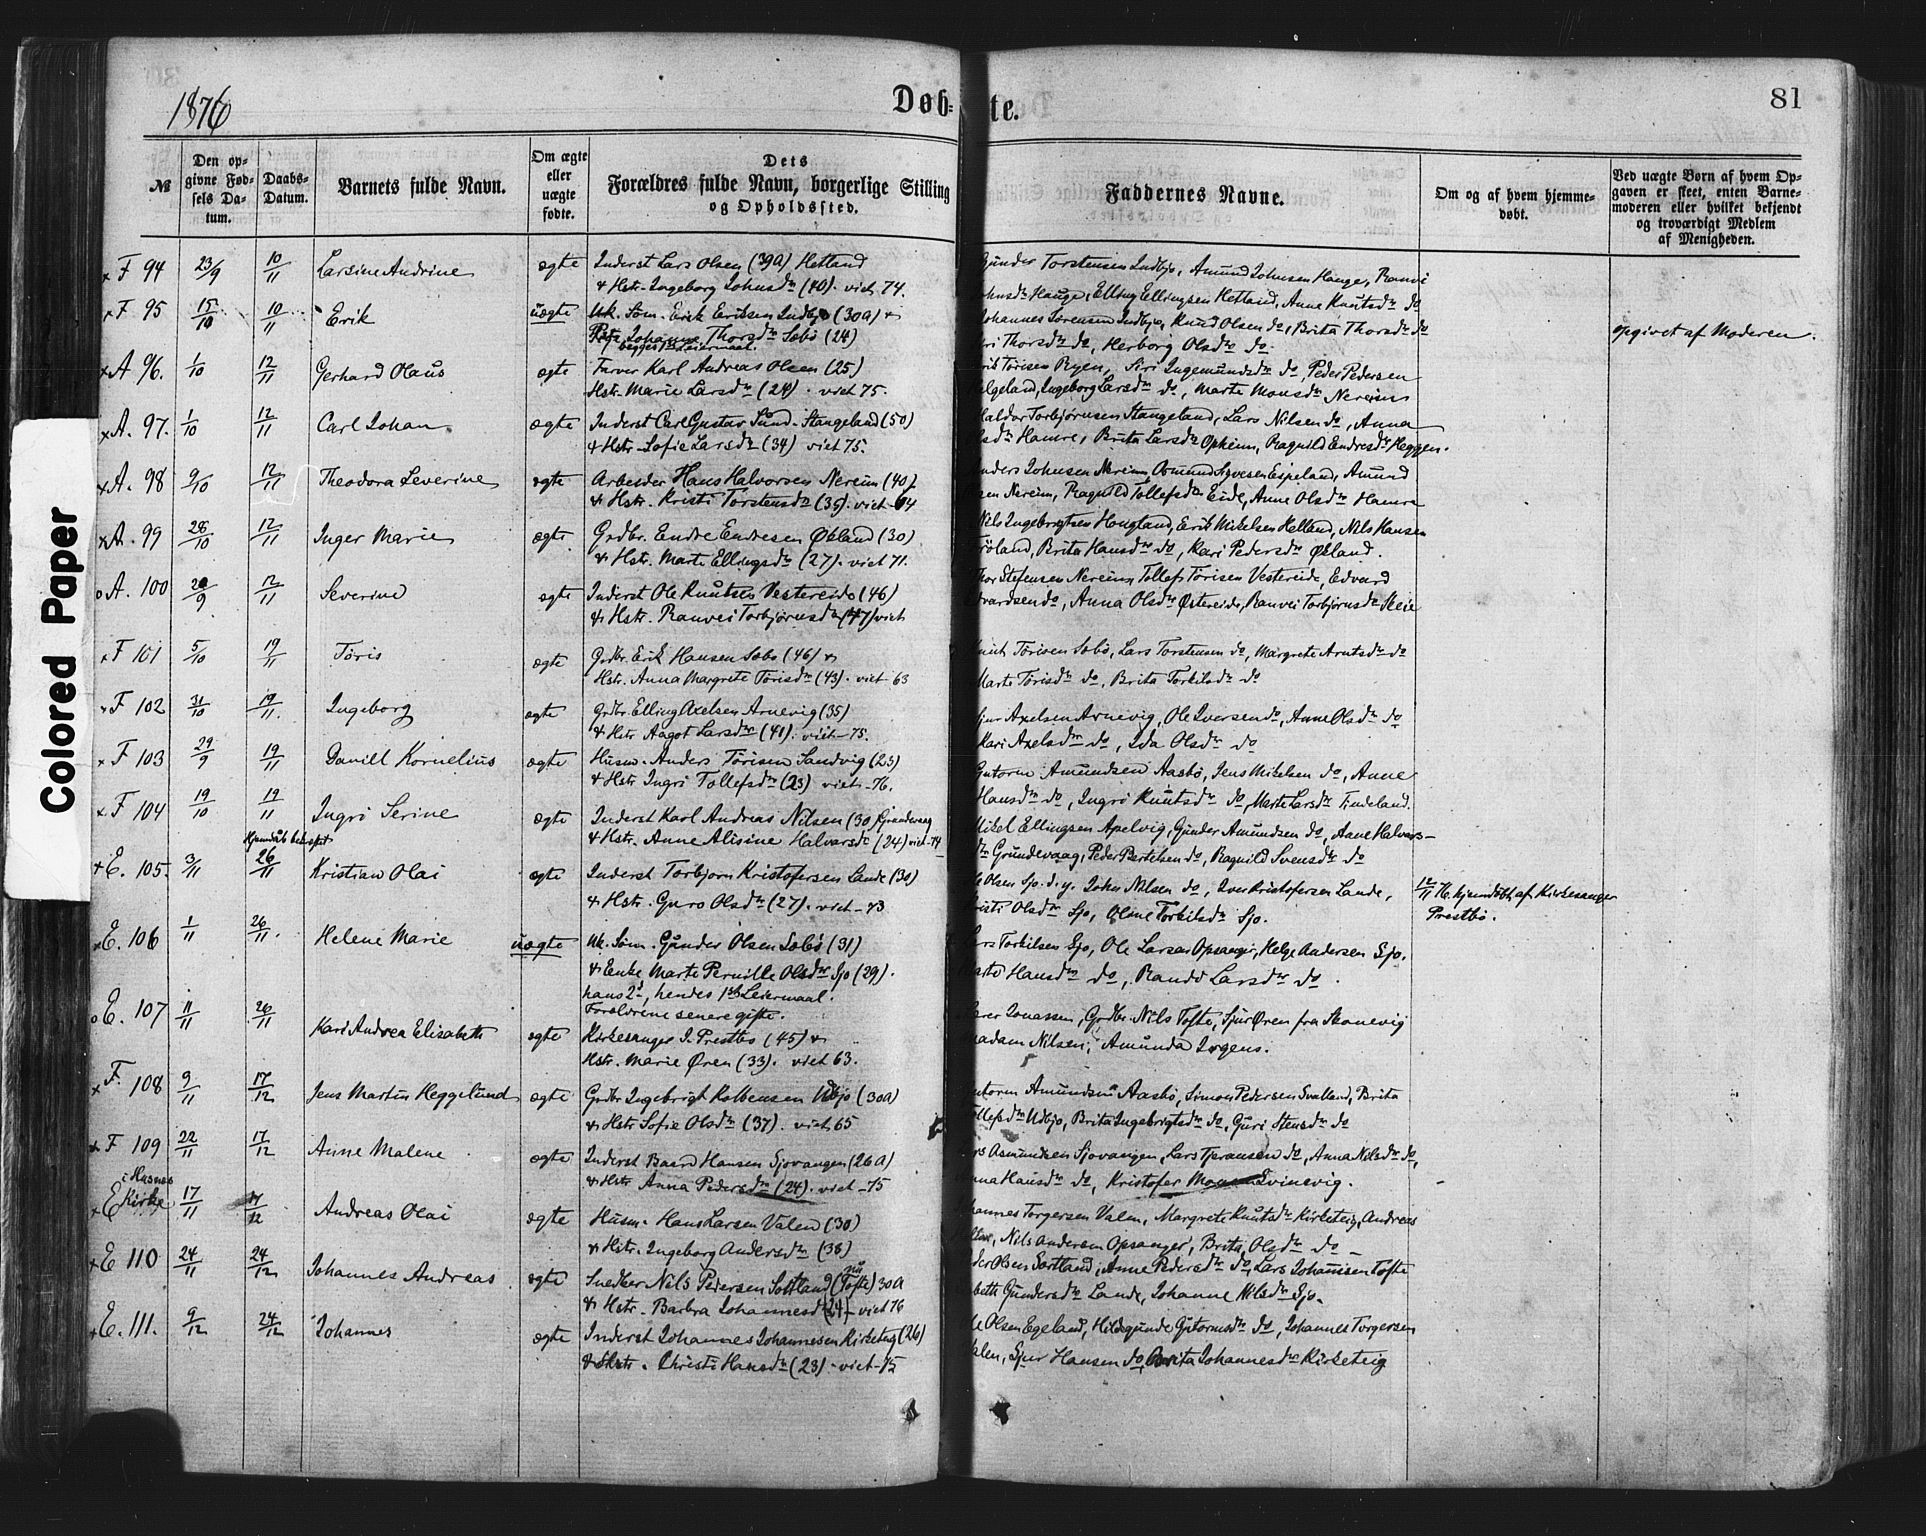 1876
Døb-
te.
81
№
Den op-
givne Fød-
sels Da-
tum.
Daabs-
Datum.
Barnets fulde Navn.
Om ægte
eller
uægte
fødte.
Dets
Forældres fulde Navn, borgerlige Stilling
og Opholdssted.
Faddernes Navne.
Om og af hvem hjemme-
døbt.
Ved uægte Børn af hvem Op-
gaven er skeet, enten Barne-
moderen eller hvilket bekjendt
og troværdigt Medlem
af Menigheden.
Colored Paper
x F 94 23/9 10/11 Larsine Andrine ægte Inderst Lars Olsen (39a) Hetland
& Hstr. Ingeborg Johnsdr (40). viet 74.
Gunder Torstensen Indbjo, Amund Johnsen Hauge, Ranvei
Johnsdr Hauge, Elling Ellingsen Hetland, Anne Knutsdr do
x F 95 15/10 10/11 Erik uægte Uk. Søn. Erik Eriksen Indbjo (30a) &
Pige Johanne Thorsdr Sæbø (24)
begges 1ste Leiermaal.
Johannes Sørensen Indbjo, Knud Olsen do, Brita Thorsdr do
Thorsdr do, Herborg Olsdr do.
opgivet af Moderen.
x A 96. 1/10 12/11 Gerhard Olaus ægte Farver Karl Andreas Olsen (25)
Hstr. Marie Larsdr (24). viet 75.
Tørisen Ryen, Siri Ingemundsdr do, Peder Pedersen
Helgeland, Ingeborg Larsdr do, Marte Monsdr Nereim
x A. 97. 1/10 12/11 Carl Johan ægte Inderst Carl Gustav Sund. Stangeland (50)
& Hstr. Sofie Larsdr (34) viet 75.
Haldor Torbjørnsen Stangeland, Lars Nilsen do, Anna
Hamre, Brita Larsdr Opheim, Ragnild Endresdr Heggen.
x A. 98 9/10 12/11 Theodora Severine ægte Arbeider Hans Halvorsen Nereim (40)
& Hstr. Kristi Torstensdr (36). viet 64
Anders Johnsen Nereim, Osmund Espeland, Amund
Nereim, Ragnild Tollefsdr Eide, Anne Olsdr Hamre
x A. 99 28/10 12/11 Inger Marie ægte Grdbr. Endre Endresen Økland (30)
& Hstr. Marte Ellingsdr (27). viet 71.
Nils Ingebrigtsen Hougland, Erik Mikelsen Helland, Nils Hansen
Frøland, Brita Hansdr do, Kari Pedersdr Økland.
o A. 100 20/9 12/11 Severine ægte Inderst Ole Knutsen Vestereide (46)
& Hstr. Ranvei Torbjørnsdr (47) viet
Thor Stefensen Nereim, Tollef Tørisen Vestereide, Edvard
Edvardsen do, Anna Olsdr Østereide, Ranvei Torbjørnsdr Skeie
x F 101 5/10 19/11 Tøris ægte Grdbr. Erik Hansen Sæbø (46) &
Hstr. Anna Margrete Tørisdr (43). viet 63
Tørisen Sæbø, Lars Torstensen do, Margrete Arntsdr do
Marte Tørisdr do, Brita Torkilsdr do
x F 102 31/10 19/11. Ingeborg ægte Grdbr. Elling Axelsen Arnevig (35)
& Hstr Aagot Larsdr (41). viet 75.
Axelsen Arnevig, Ole Iversen do, Anne Olsdr do
Kari Axelsdr do, Ida Olsdr do
x F 103 29/9 19/11 Daniel Kornelius ægte Husm. Anders Tørisen Sandvig (23)
& Hstr Ingri Tollefsdr (23) viet 76.
Gutorm Amundsen Aasbø, Jens Mikelsen do, Anne
Hansdr do, Ingri Knutsdr do, Marte Larsdr Tindeland.
x F 104 19/10 19/11 Ingri Serine ægte Inderst Karl Andreas Nilsen (30) Grundevaag
& Hstr. Anne Alisine Halvorsdr (24) viet 74
Mikel Ellingsen Apelvig, Gunder Amundsen do, Anne Halvors-
dr Grundevaag, Peder Bertelsen do, Ragnild Svensdr do
Hjemdåb bekræftet
x E. 105. 3/11 26/11 Kristian Olai ægte Inderst Torbjorn Kristofersen Lande (30)
& Hstr. Guro Olsdr (27). viet 73
Olsen Sjo. d. y. John Nilsen do, Iver Kristofersen Lande,
Kristi Olsdr Sjo, Oline Torkilsdr Sjo.
12/11 76. hjemdøbt af Kirkesanger
Prestbø.
x E. 106 1/11 26/11. Helene Marie uægte Uk. Søm. Gunder Olsen Sæbø (31)
& Enke Marte Pernille Olsdr Sjo (29).
hans 2d, hendes 1ste Leiermaal.
Forældrene senere gifte.
Lars Torkilsen Sjo, Ole Larsen Opsanger, Helge Andersen Sjo.
Marte Hansdr do, Randi Larsdr do.
o E. 107 11/11 26/11 Kari Andrea Elisabeth ægte Kirkesanger I. Prestbø (45) &
Hstr. Marie Øren (33). viet 63.
Jonassen, Grdbr. Nils Tofte, Sjur Øren fra Skonevig
Madam Nilsen, Amunda Jørgens.
x F. 108 9/11 17/12 Jens Martin Heggelund ægte Grdbr Ingebrigt Kolbensen Udbjo (30a)
& Hstr Sofie Olsdr (37). viet 65
Gutorm Amundsen Aasbø, Simon Pedersen Svalland, Brita
Tollefsdr Udbjo, Brita Ingebrigtsdr do, Guri Stensdr do
x F 109 22/11 17/12 Anne Malene ægte Inderst Baard Hansen Sjovangen (26a)
& Hstr Anna Pedersdr (24). viet 75
Asmundsen Sjovangen, Lars Tjeransen do, Anna Nilsdr do,
Anna Hansdr do, Kristofer Monsen Svinevig.
i Husnes
x E Kirke 17/11 17/12 Andreas Olai ægte Husm. Hans Larsen Valen (30)
& Hstr. Ingeborg Andersdr (38)
Johannes Torgersen Valen, Margrete Knutsdr Kirketeig, Andreas
Nils Andersen Opsanger, Brita Olsdr do
x E 110 24/11 24/12 Johannes Andreas ægte Snedker Nils Pedersen Sortland (nu Tofte) 30a
& Hstr. Barbra Johannesd (24) viet 76
Peder Olsen Sortland, Anne Pedersdr do, Lars Johannesen Tofte
Gundersdr Lande, Johanne Nilsdr Sjo.
x E. 111. 9/12 24/12 Johannes ægte Inderst Johannes Johannesen Kirketeig (26)
& Hstr. Christi Hansdr (23). viet 75
Ole Olsen Egeland, Hildegunde Gutormsdr do, Johannes Torgersen
Valen, Sjur Hansen do, Brita Johannesdr Kirketeig